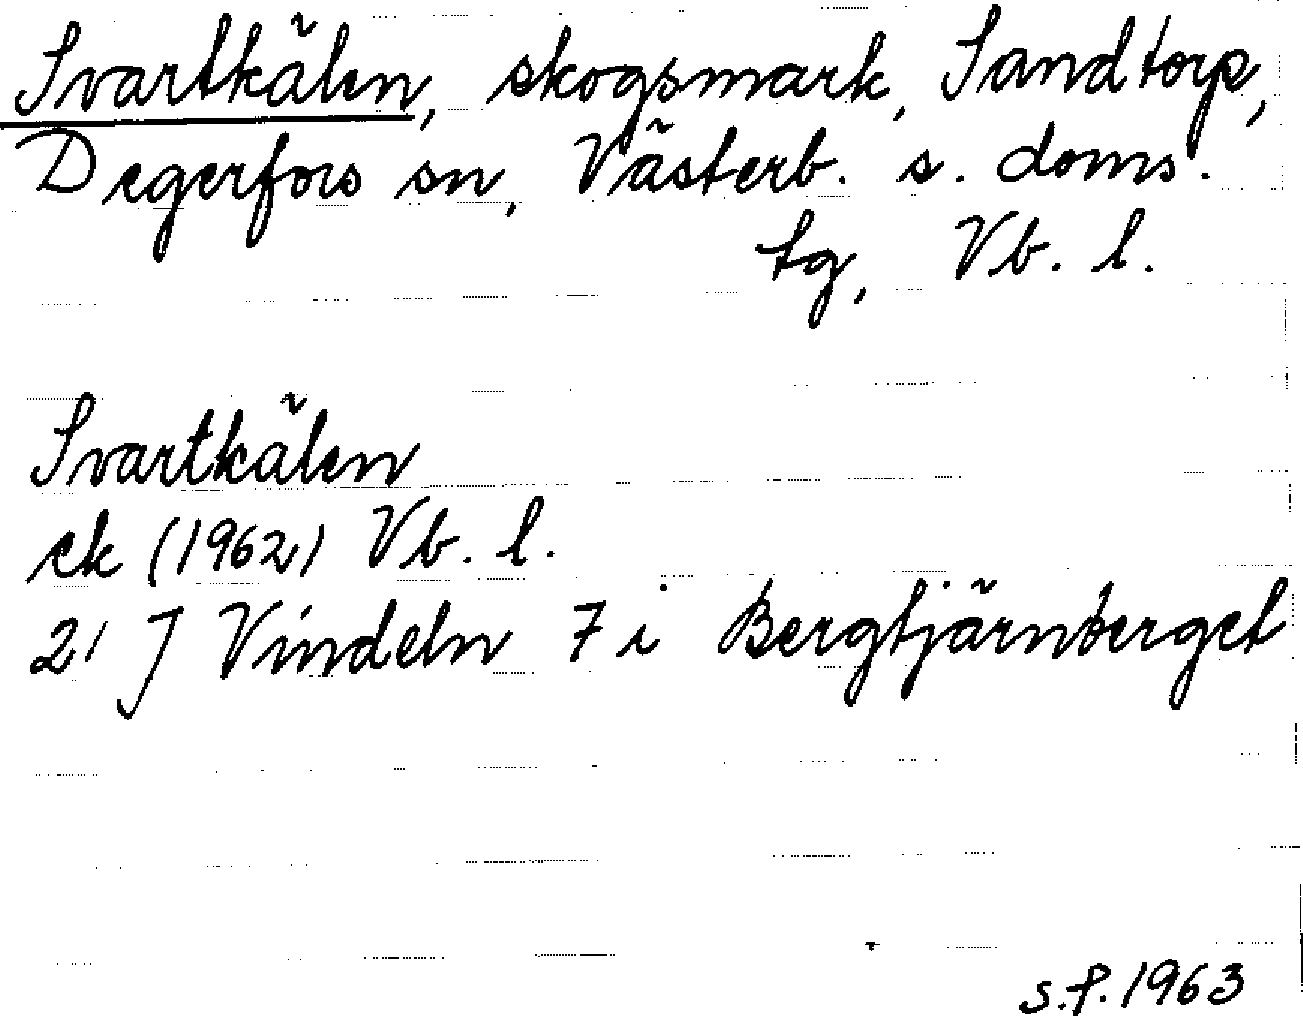 Svartkälen, skogsmark, Sandtorp,
Degerfors sn, Västerb. s. doms.
tg, Vb. l.
Svartkälen
ek (1962) Vb. l.
21 J Vindeln 7 i Bergtjärnberget
s.f. 1963